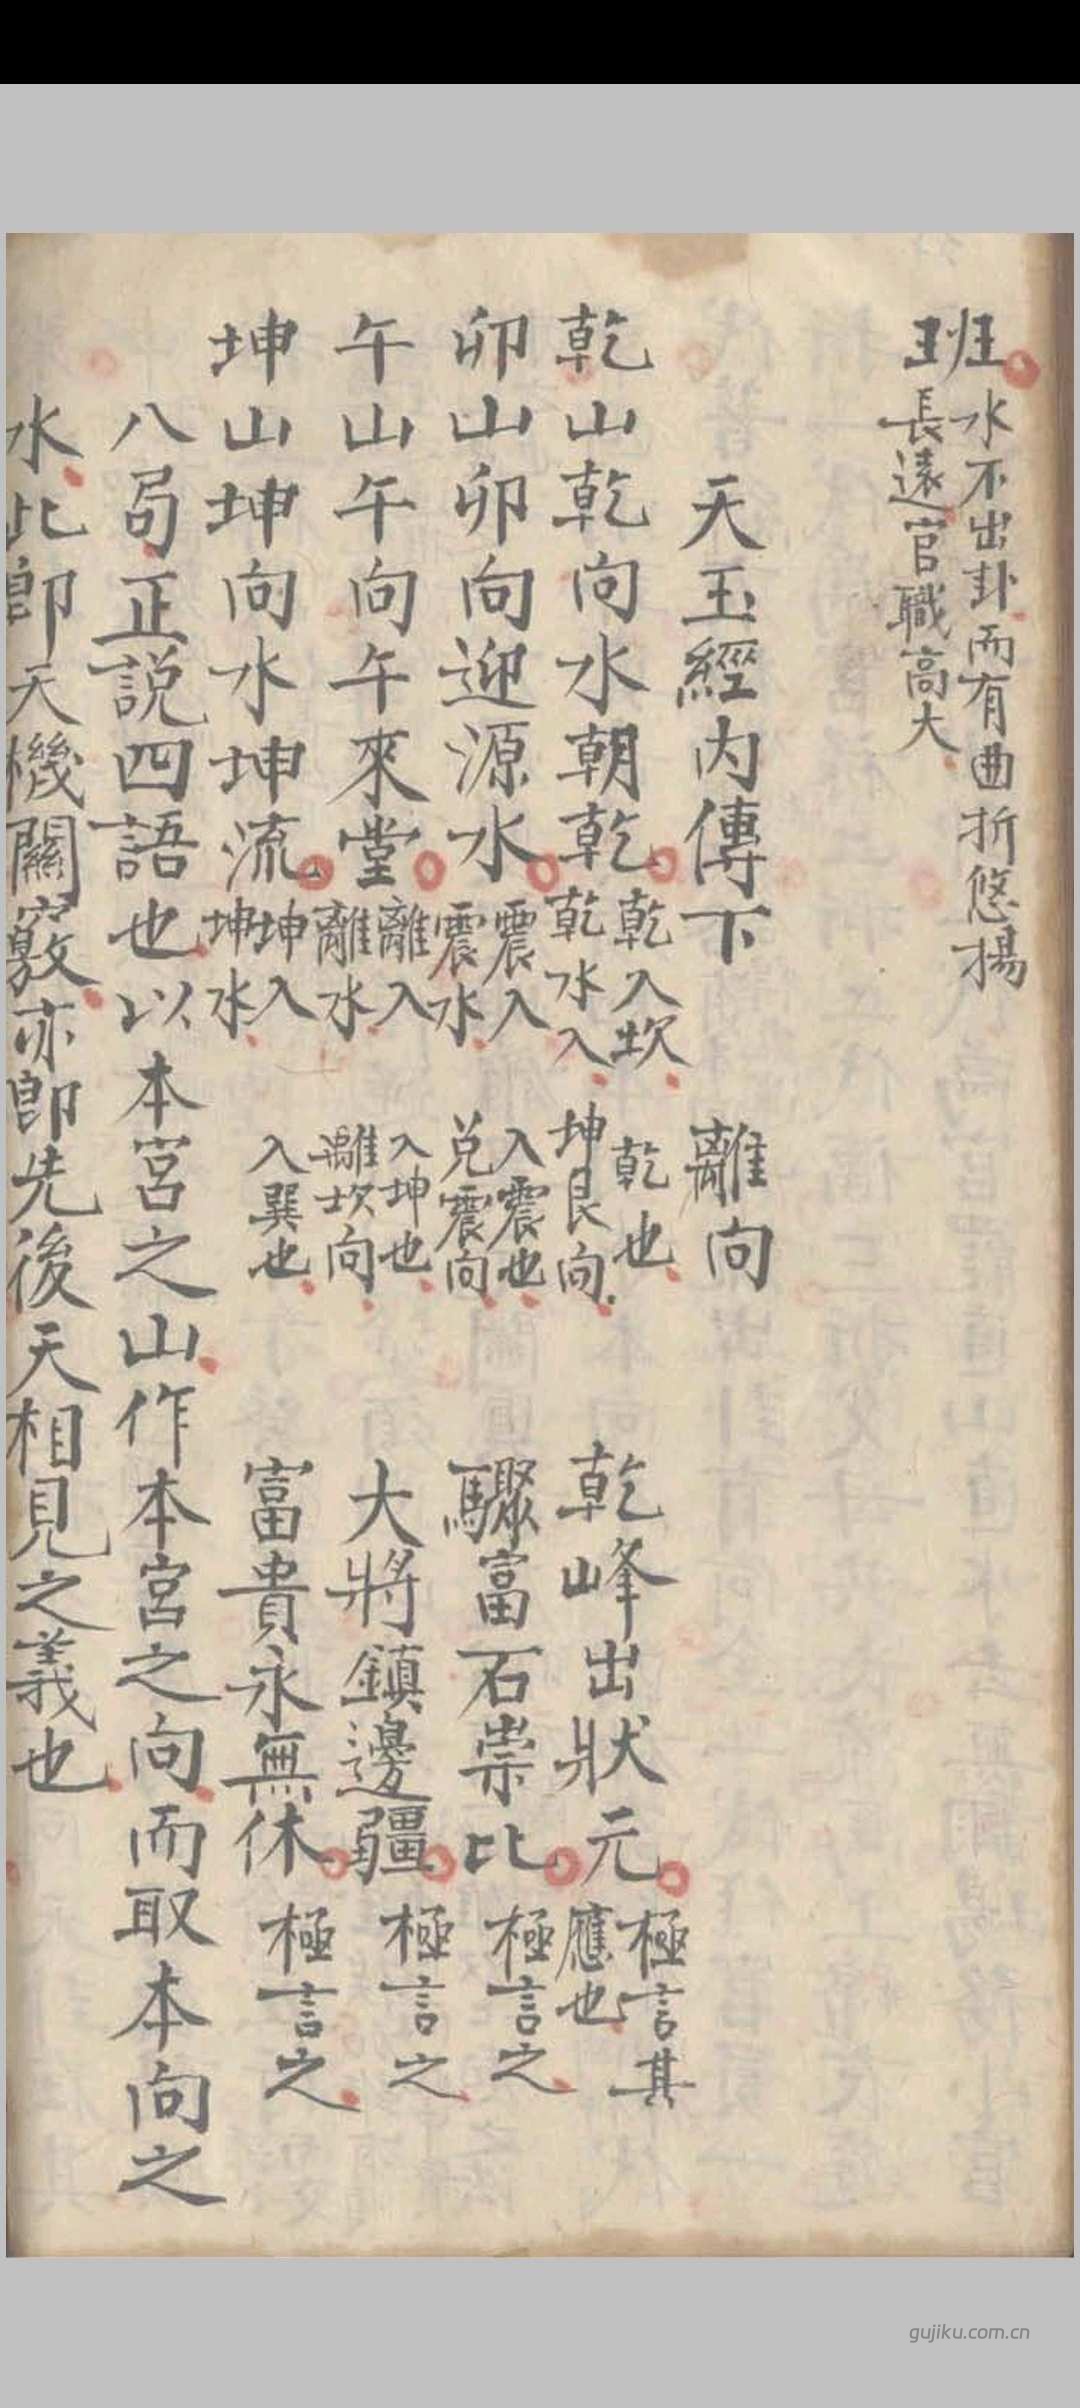 班水不出卦而有曲折悠揚
長遠官職高大
天玉經內傳下
離向
乾山乾向水朝乾乾入坎乾水入
乾也坤艮向
乾峰出狀元極言其應也
卯山卯向迎源水震入震水
入震也兌震向
驟富石崇比極言之
午山午向午來堂離入離水
入坤也離坎向
大將鎮邊疆極言之
坤山坤向水坤流坤入坤水
入巽也
富貴永無休極言之
八局正說四語也以本宮之山作本宮之向而取本向之
水此即天機關竅亦即先後天相見之義也
gujiku.com.cn